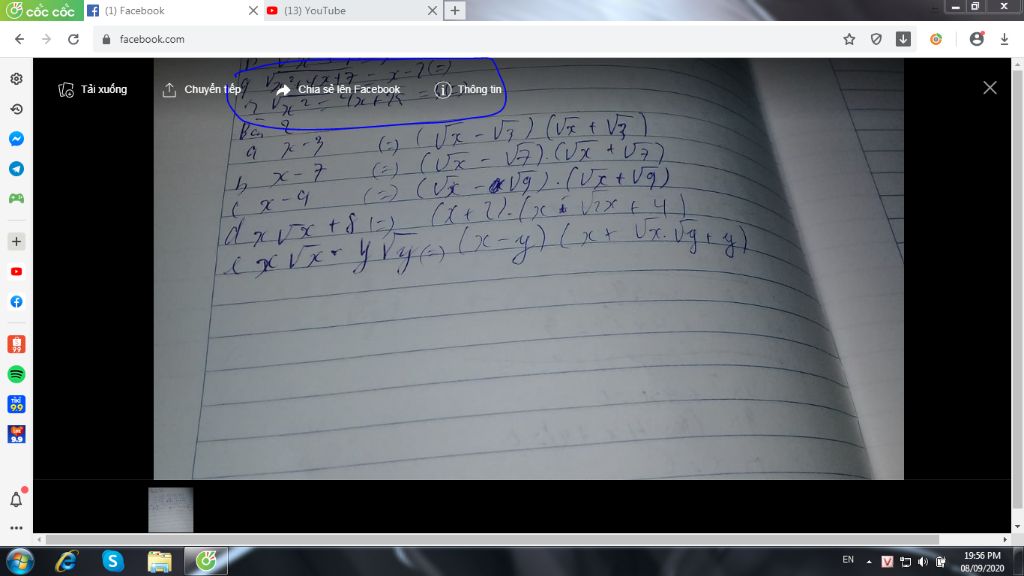 cốc cốc (1) Facebook (13) YouTube
facebook.com
Tải xuống Chuyển tiếp Chia sẻ lên Facebook Thông tin
x - 3 (=) (√x - √3) (√x + √3)
b x - 7 (=) (√x - √7).(√x + √7)
c x - 9 (=) (√x - √9).(√x + √9)
d x√x + 8 (=) (x + 2).(x √2x + 4)
e x√x - y√y (=) (x - y) (x + √x.√y + y)
EN 19:56 PM
08/09/2020